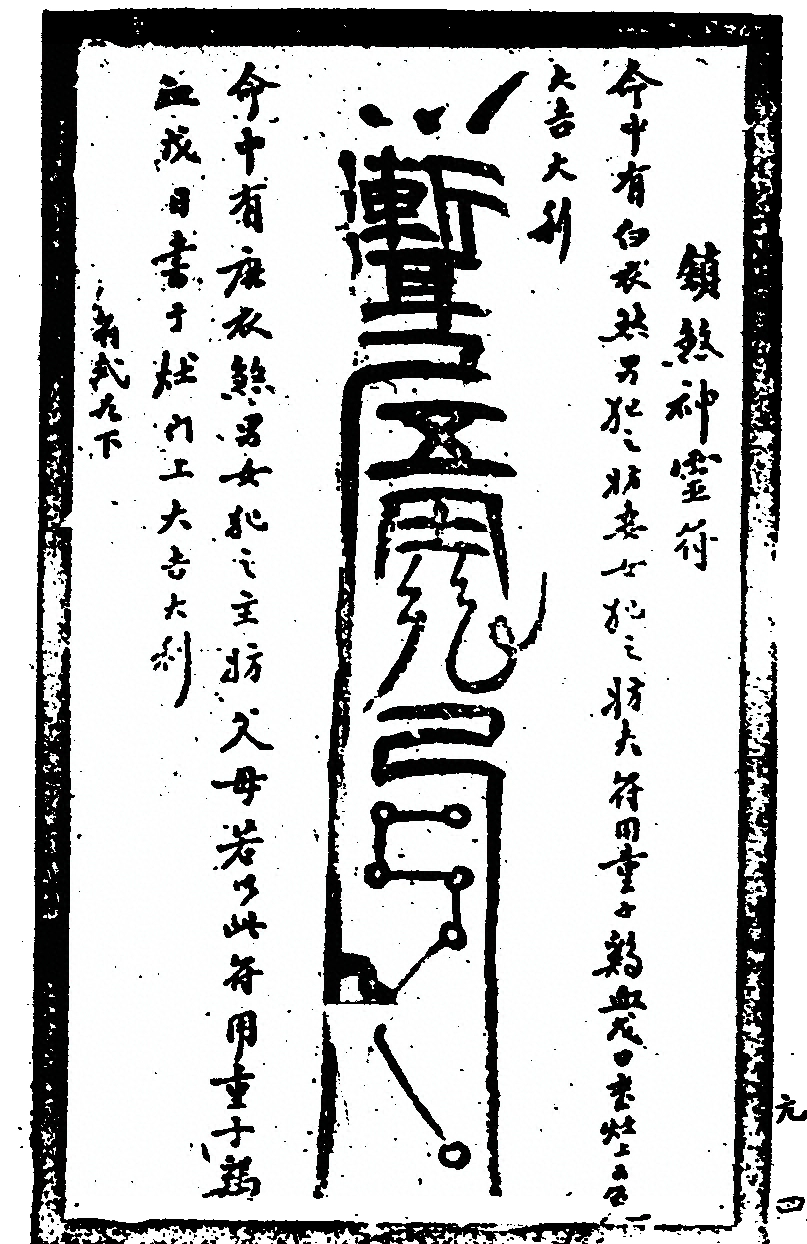 鎮煞神靈符
命中有白衣煞男犯之妨妻女犯之妨夫符用童子鷄血戊日書灶上
大吉大利
命中有麻衣煞男女犯之主妨父母若以此符用童子鷄
血戊日書于灶門上大吉大利
符式在下
元
四